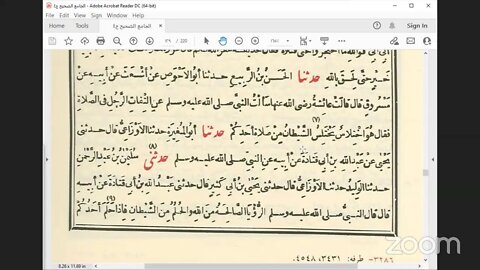 الجامع الصحيح ج٤ - Adobe Acrobat Reader DC (64-bit)
Sign In
خير حتى لحق بالله حدثنا الحسن بن الربيع حدثنا أبو الأحوص عن أشعث عن أبيه عن
مسروق قال قالت عائشة رضى الله عنها سألت النبى صلى الله عليه وسلم عن التفات الرجل فى الصلاة
فقال هو اختلاس يختلس الشيطان من صلاة أحدكم حدثنا أبو المغيرة حدثنا الأوزاعى قال حدثنى
يحيى عن عبد الله بن أبى قتادة عن أبيه عن النبى صلى الله عليه وسلم حدثنى سليمن بن عبد الرحمن
حدثنا الوليد حدثنا الأوزاعى قال حدثنى يحيى بن أبى كثير قال حدثنى عبد الله بن أبى قتادة عن أبيه
قال قال النبى صلى الله عليه وسلم الرؤيا الصالحة من الله والحلم من الشيطان فإذا حلم أحدكم
٣٢٨٦- طرفه: ٣٤٣١، ٤٥٤٨.
8.26 x 11.69 in
zoom